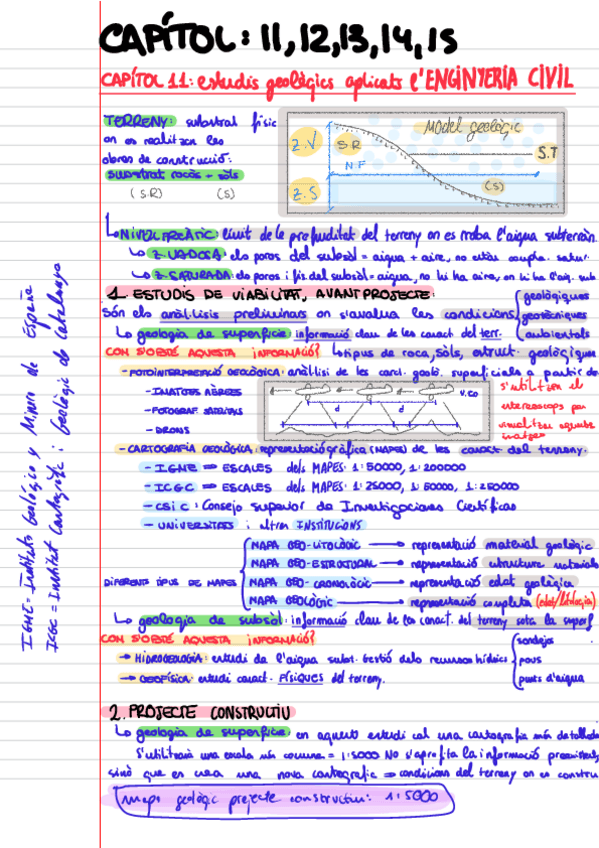 CAPÍTOL: 11,12,13,14,15
CAPÍTOL 11: estudis geològics aplicats l'ENGINYERIA CIVIL
TERRENY: substrat físic
on es realitzen les
obres de construcció:
substrat rocós - sòls
(S.R) (S)
Model geològic
Z.V
S.R
S.T
N.F
Z.S
(S)
NIVELL FREÀTIC: límit de la profunditat del terreny on es troba l'aigua subterràn.
Z. VADOSA: els poros del subsòl = aigua + aire, no estàn comple. satur.
Z. SATURADA: els poros i fis del subsòl = aigua, no hi ha aire, on hi ha l'aig. sub.
1. ESTUDIS DE VIABILITAT, AVANTPROJECTE:
Són els anàlisis preliminars on s'avalua les condicions
geològiques
geotècniques
ambientals
La geologia de superfície: informació clau de les caract. del terr.
COM S'OBTÉ AQUESTA INFORMACIÓ? tipus de roca, sòls, estruct. geològiques
- FOTOINTERPRETACIÓ GEOLÒGICA: anàlisi de les caract. geolò. superficials a partir de
- IMATGES AÈREES
- FOTOGRAF SATÈLITS
- DRONS
d
d
s'utilitzen el
estereoscopi per
visualitzar aquestes
imatges
- CARTOGRAFIA GEOLÒGICA: representació gràfica (MAPES) de les caract. del terreny.
- IGME ⇒ ESCALES dels MAPES: 1:50000, 1:200000
- ICGC ⇒ ESCALES dels MAPES: 1:25000, 1:50000, 1:250000
- CSIC: Consejo Superior de Investigaciones Científicas
- UNIVERSITATS i altres INSTITUCIONS
DIFERENTS TIPUS DE MAPES
MAPA GEO-LITOLÒGIC → representació material geològic
MAPA GEO-ESTRUCTURAL → representació estructura materials
MAPA GEO-CRONOLÒGIC → representació edat geològica
MAPA GEOLÒGIC → representació completa (edat/litologia)
La geologia de subsòl: informació clau de les caract. del terreny sota la superf
COM S'OBTÉ AQUESTA INFORMACIÓ?
→ HIDROGEOLOGIA: estudi de l'aigua subt. Gestó dels recursos hídrics
→ GEOFÍSICA: estudi caract. FÍSIQUES del terreny.
sondejos
pous
punts d'aigua
2. PROJECTE CONSTRUCTIU
La geologia de superfície: en aquest estudi cal una cartografia més detallada
S'utilitzarà una escala més comuna = 1:5000 No s'aprofita la informació preexistent,
sinó que es crea una nova cartografia ⇒ condicions del terreny on es constru
mapa geològic projecte constructiu: 1:5000
IGME = Instituto Geológico y Minero de España
ICGC = Institut Cartogràfic i Geològic de Catalunya